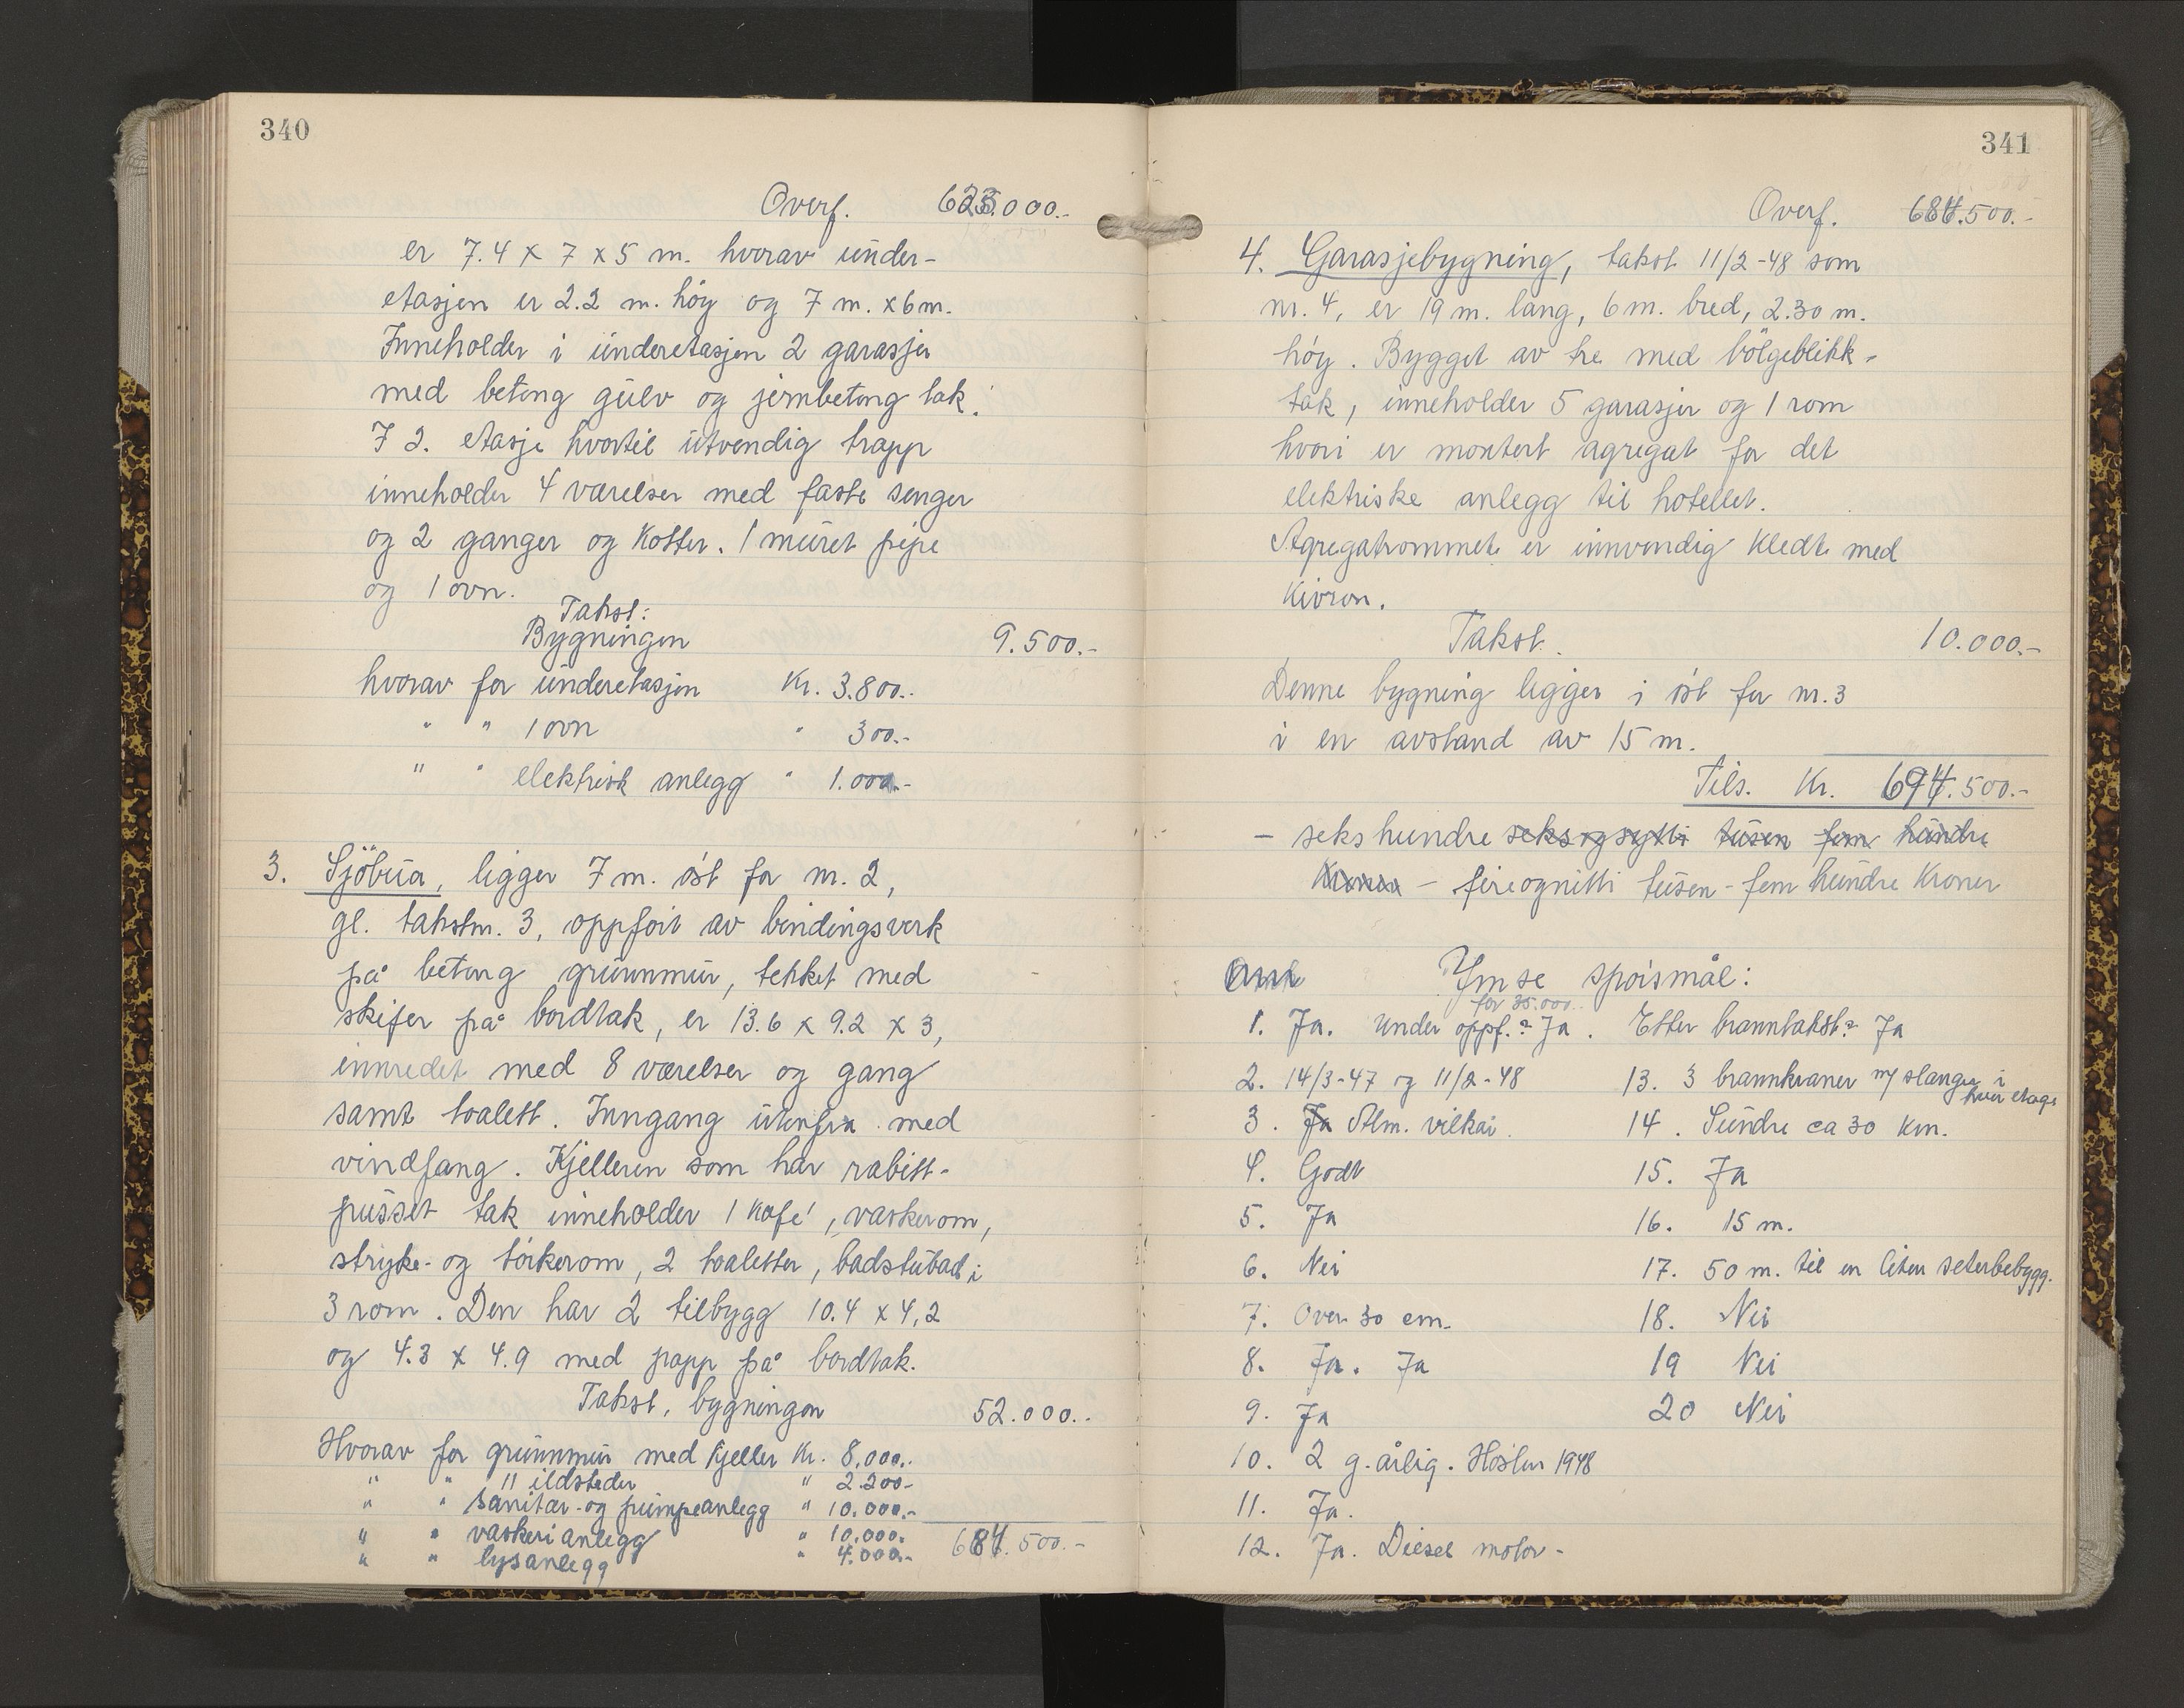 340
Overf. 623.000.-
er 7.4 x 7 x 5 m. hvorav under-
etasjen er 2.2 m. høy og 7 m. x 6 m.
Inneholder i underetasjen 2 garasjer
med betong gulv og jernbetong tak.
I 2. etasje hvortil utvendig trapp
inneholder 4 værelser med faste senger
og 2 ganger og kotter. 1 muret pipe
og 1 ovn.
Takst:
Bygningen 9.500.-
hvorav for underetasjen Kr. 3.800.-
" " 1 ovn " 300.-
" " elektrisk anlegg " 1.000.-
3. Sjöbua, ligger 7 m. öst for nr. 2,
gl. takstnr. 3, oppfört av bindingsverk
på betong grunnmur, tekket med
skifer på bordtak, er 13.6 x 9.2 x 3,
innredet med 8 værelser og gang
samt toalett. Inngang utenfra med
vindfang. Kjelleren som har rabitt-
pusset tak inneholder 1 kafé, vaskerom,
stryke- og törkerom, 2 toaletter, badstubad i
3 rom. Den har 2 tilbygg 10.4 x 4,2
og 4.3 x 4.9 med papp på bordtak.
Takst, bygningen 52.000.-
Hvorav for grunnmur med kjeller Kr. 8.000.-
" " 11 ildsteder " 2.200-
" " sanitær- og pumpeanlegg " 10.000.-
" " vaskerianlegg " 10.000.-
" " lysanlegg " 4.000.- 684.500.-
341
Overf. 684.500.-
4. Garasjebygning, takst 11/2-48 som
nr. 4, er 19 m. lang, 6 m. bred, 2.30 m.
höy. Bygget av tre med bölgeblikk-
tak, inneholder 5 garasjer og 1 rom
hvori er montert agregat for det
elektriske anlegg til hotellet.
Agregatrommet er innvendig kledt med
Kivron.
Takst. 10.000.-
Denne bygning ligger i öst for nr. 3
i en avstand av 15 m.
Tils. Kr. 694.500.-
- seks hundre seksogsytti tusen fem hundre
Kroner - fireognitti tusen - fem hundre Kroner
Ymse spörsmål:
for 35.000.-
1. Ja. Under oppf.? Ja. Etter branntakst? Ja
2. 14/3-47 og 11/2-48
3. Ja Alm. vilkår.
4. Godt
5. Ja
6. Nei
7. Over 30 cm.
8. Ja. Ja
9. Ja
10. 2 g. årlig. Hösten 1948
11. Ja.
12. Ja. Diesel motor-
13. 3 brannkraner m/ slanger i
hver etage
14. Sundre ca 30 km.
15. Ja
16. 15 m.
17. 50 m. til en liten seterbebygg.
18. Nei
19 Nei
20 Nei